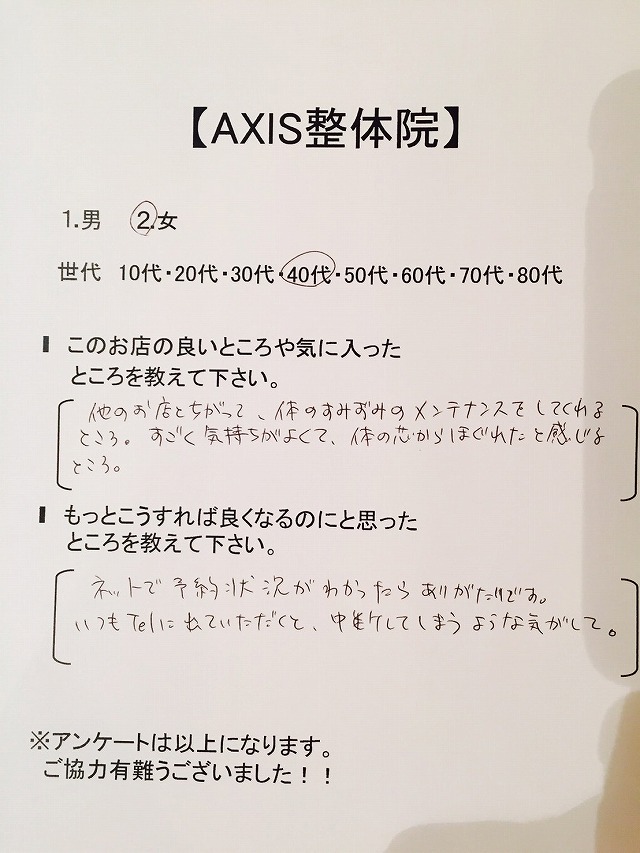 【AXIS整体院】
1.男 2.女
世代 10代・20代・30代・40代・50代・60代・70代・80代
このお店の良いところや気に入った
ところを教えて下さい。
他のお店とちがって、体のすみずみのメンテナンスをしてくれる
ところ。すごく気持ちがよくて、体の芯からほぐれたと感じる
ところ。
もっとこうすれば良くなるのにと思った
ところを教えて下さい。
ネットで予約状況がわかったらありがたいです。
いつもTelに出ていただくと、中断してしまうような気がして。
※アンケートは以上になります。
ご協力有難うございました！！